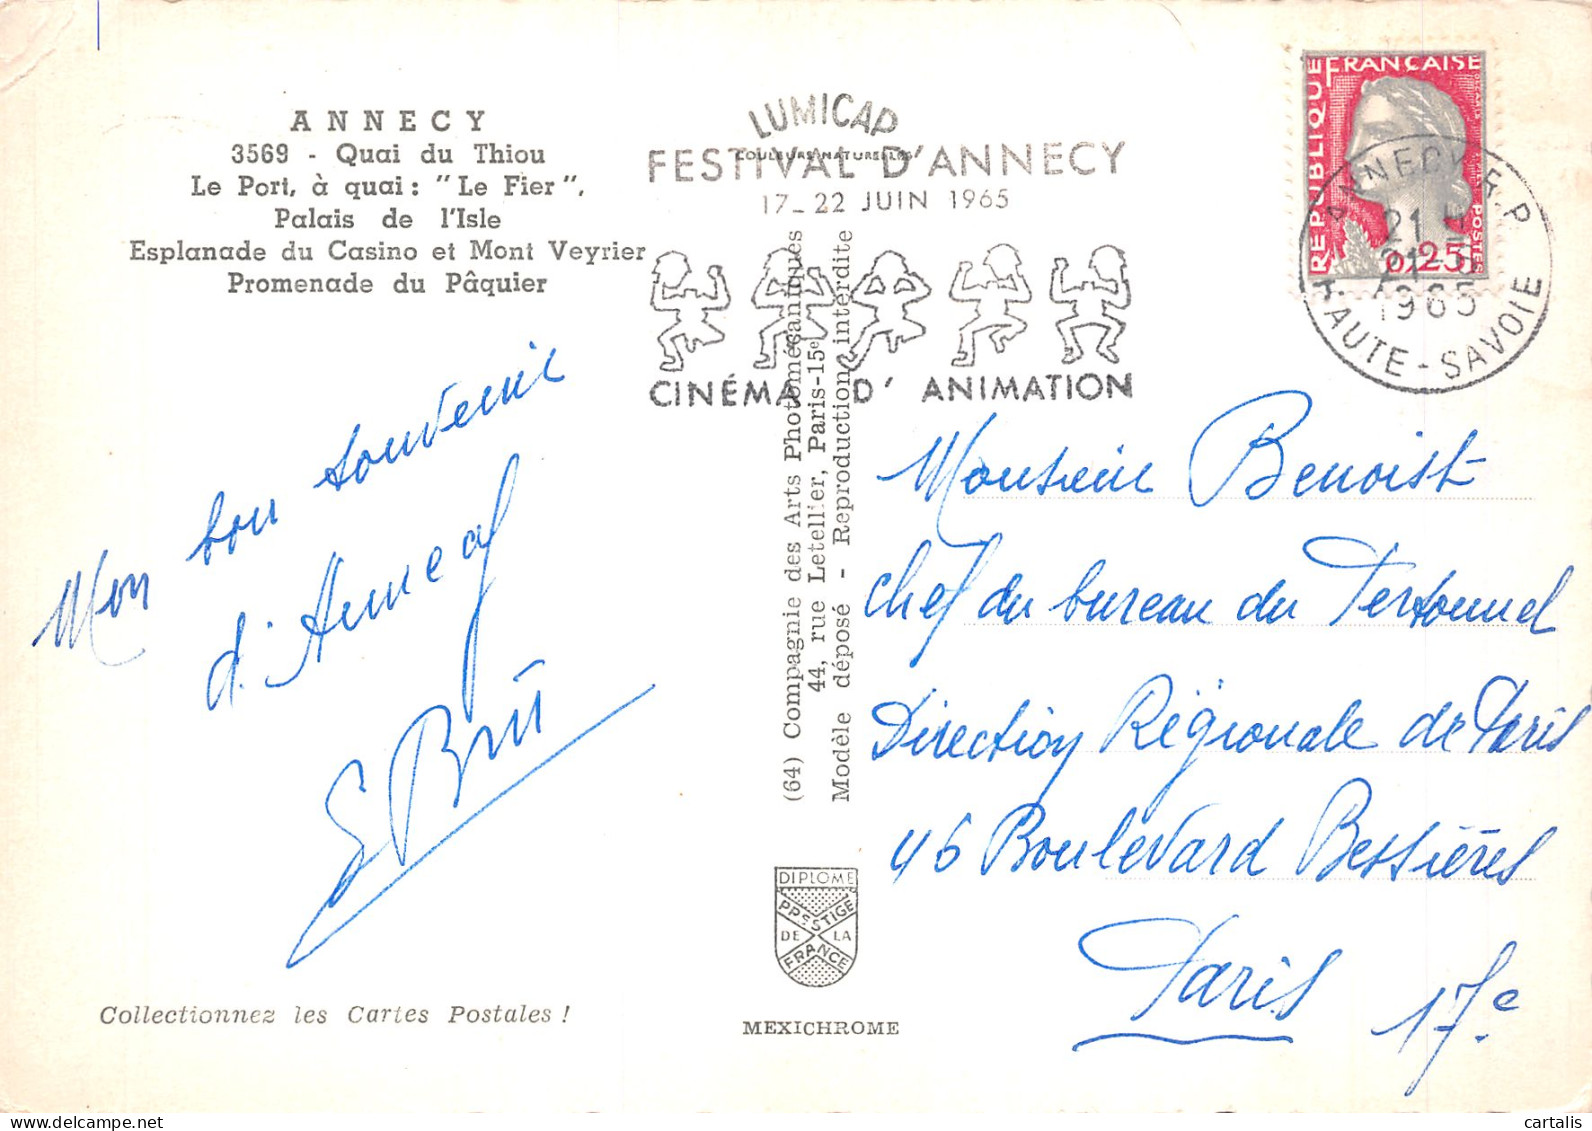 ANNECY
3569 - Quai du Thiou
Le Port, à quai : "Le Fier",
Palais de l'Isle
Esplanade du Casino et Mont Veyrier
Promenade du Pâquier
Mon bon souvenir
d'Annecy
Collectionnez les Cartes Postales !
LUMICAP
COULEURS NATURELLES
FESTIVAL D'ANNECY
17_22 JUIN 1965
CINÉMA D'ANIMATION
(64) Compagnie des Arts Photomécaniques
44, rue Letellier, Paris-15e
Modèle déposé - Reproduction interdite
DIPLOME
PRESTIGE
DE LA
FRANCE
MEXICHROME
RÉPUBLIQUE FRANÇAISE
POSTES
0,25
ANNECY R.P.
21
1965
HAUTE-SAVOIE
Monsieur Benoist
Chef du bureau du Personnel
Direction Régionale de Paris
46 Boulevard Bessières
Paris 17e
delcampe.net
cartalis